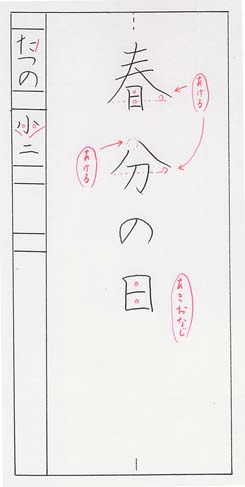 春分の日
あける
あける
あきおなじ
たつの
小二